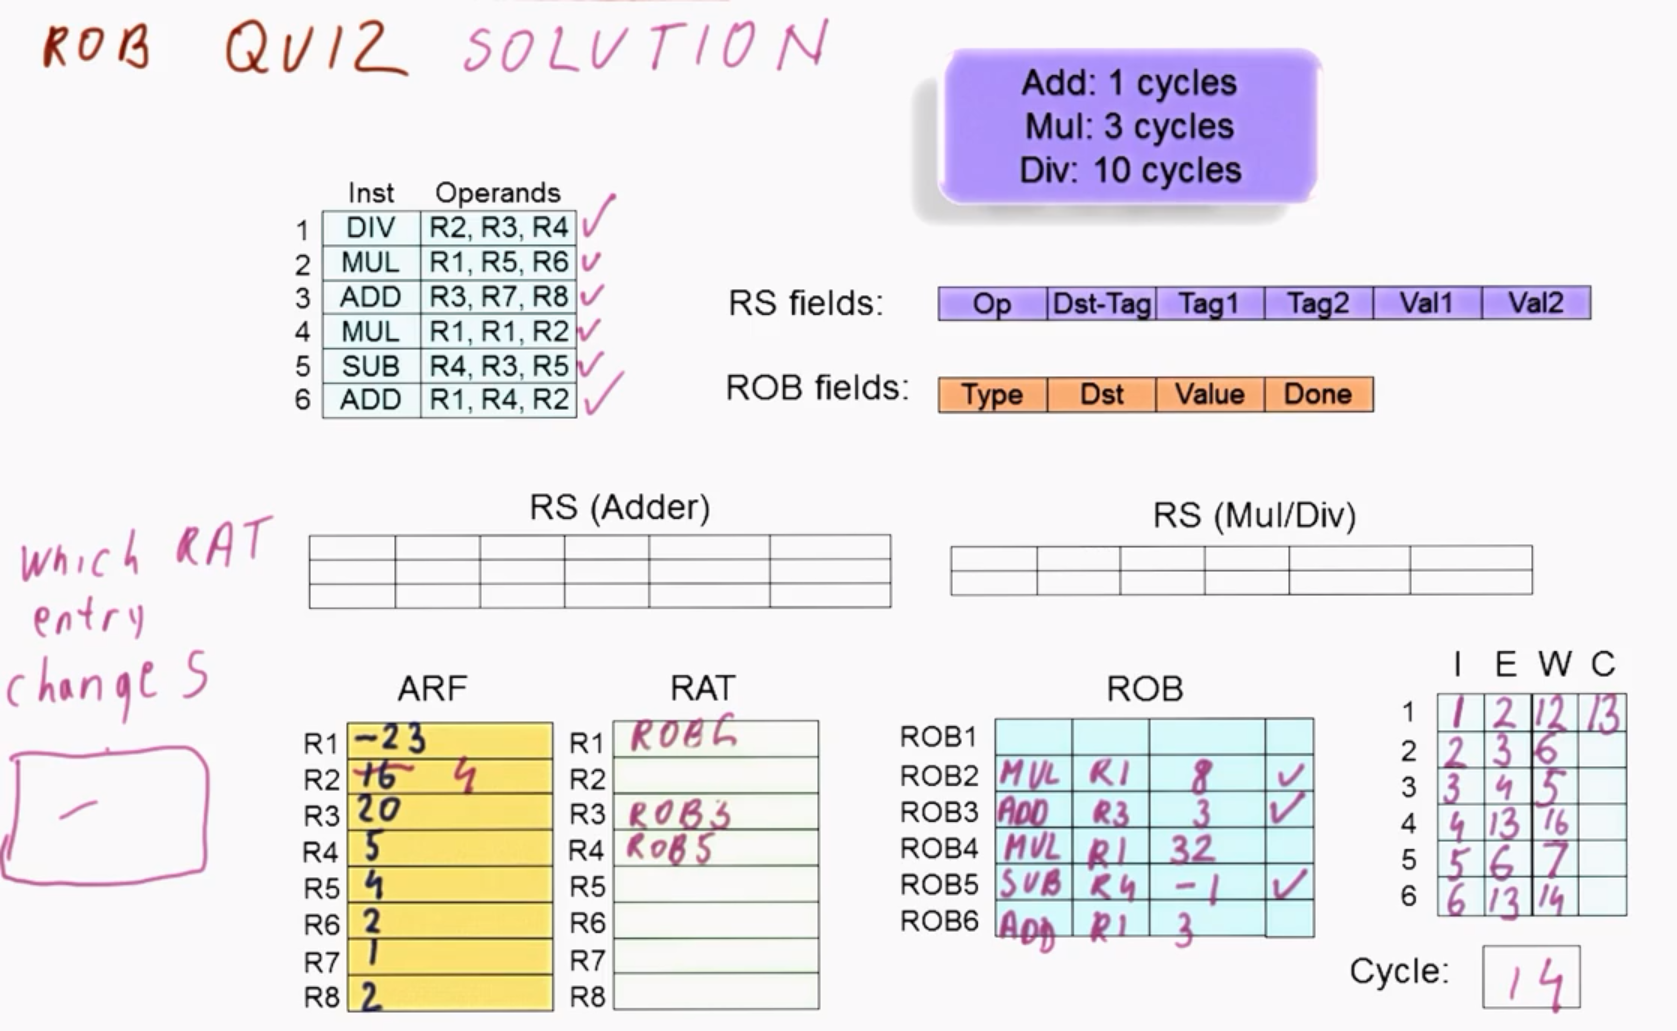 ROB QUIZ SOLUTION
Add: 1 cycles
Mul: 3 cycles
Div: 10 cycles
Inst Operands
1 DIV R2, R3, R4 ✓
2 MUL R1, R5, R6 ✓
3 ADD R3, R7, R8 ✓
4 MUL R1, R1, R2 ✓
5 SUB R4, R3, R5 ✓
6 ADD R1, R4, R2 ✓
RS fields: Op Dst-Tag Tag1 Tag2 Val1 Val2
ROB fields: Type Dst Value Done
RS (Adder)
RS (Mul/Div)
Which RAT
entry
changes
—
ARF
R1 -23
R2 16 4
R3 20
R4 5
R5 4
R6 2
R7 1
R8 2
RAT
R1 ROB6
R2
R3 ROB3
R4 ROB5
R5
R6
R7
R8
ROB
ROB1
ROB2 MUL R1 8 ✓
ROB3 ADD R3 3 ✓
ROB4 MUL R1 32
ROB5 SUB R4 -1 ✓
ROB6 ADD R1 3
I E W C
1 1 2 12 13
2 2 3 6
3 3 4 5
4 4 13 16
5 5 6 7
6 6 13 14
Cycle: 14